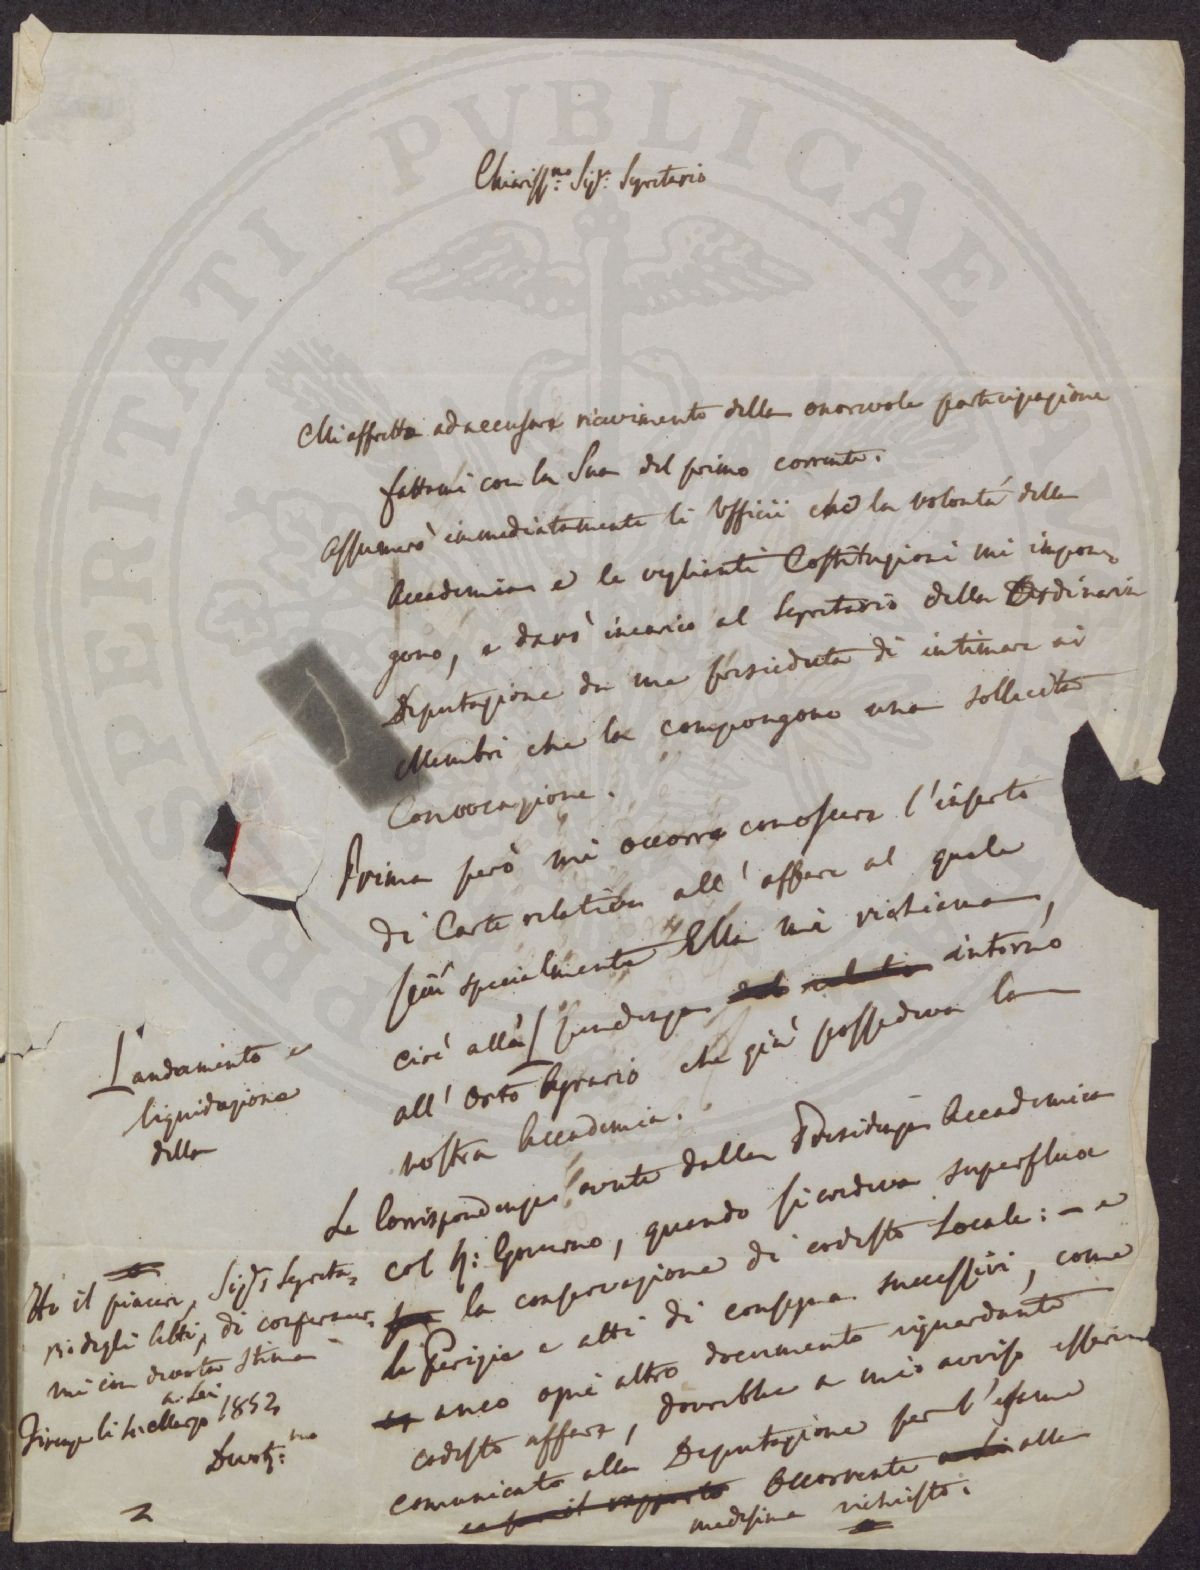 PROSPERITATI PUBLICAE AUGENDAE
Chiariss.mo Sigr. Segretario
Mi affretto ad accusare ricevimento della onorevole partecipazione
fattami con la Sua del primo corrente.
Assumerò immediatamente li Ufficii che la volontà della
Accademia e le veglianti Costituzioni mi impon,
gono, e darò incarico al Segretario della Ordinaria
Deputazione da me presieduta di intimare ai
Membri che la compongono una sollecita
Convocazione.
Prima però mi occorre conoscere l'inserto
di Carte relativo all'affare al quale
specialmente Ella mi richiama,
cioè alla pendenza intorno
all'Orto Agrario che già possedeva la
nostra Accademia.
L'andamento e
liquidazione
della
Le Corrispondenze avute dalla Presidenza Accademica
col R: Governo, quando si credeva superflua
la conservazione di codesto Locale: - e
le Perizie e atti di consegna successivi, come
anco ogni altro documento riguardante
codesto affare, dovrebbe a mio avviso esser
comunicato alla Deputazione per l'esame
occorrente alla
medesima richiesto.
Ho il piacere, Sigr. Segreta,
rio degli Atti, di confermar,
mi con devota stima
a Lei
Firenze li Marzo 1852,
Devot:mo
2